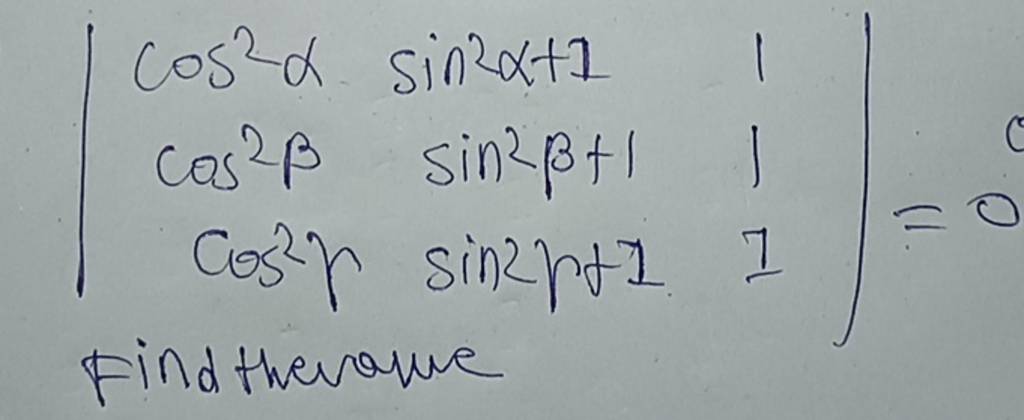 cos²α sin²α+1 1
cos²β sin²β+1 1
= 0
cos²γ sin²γ+1 1
Find the value